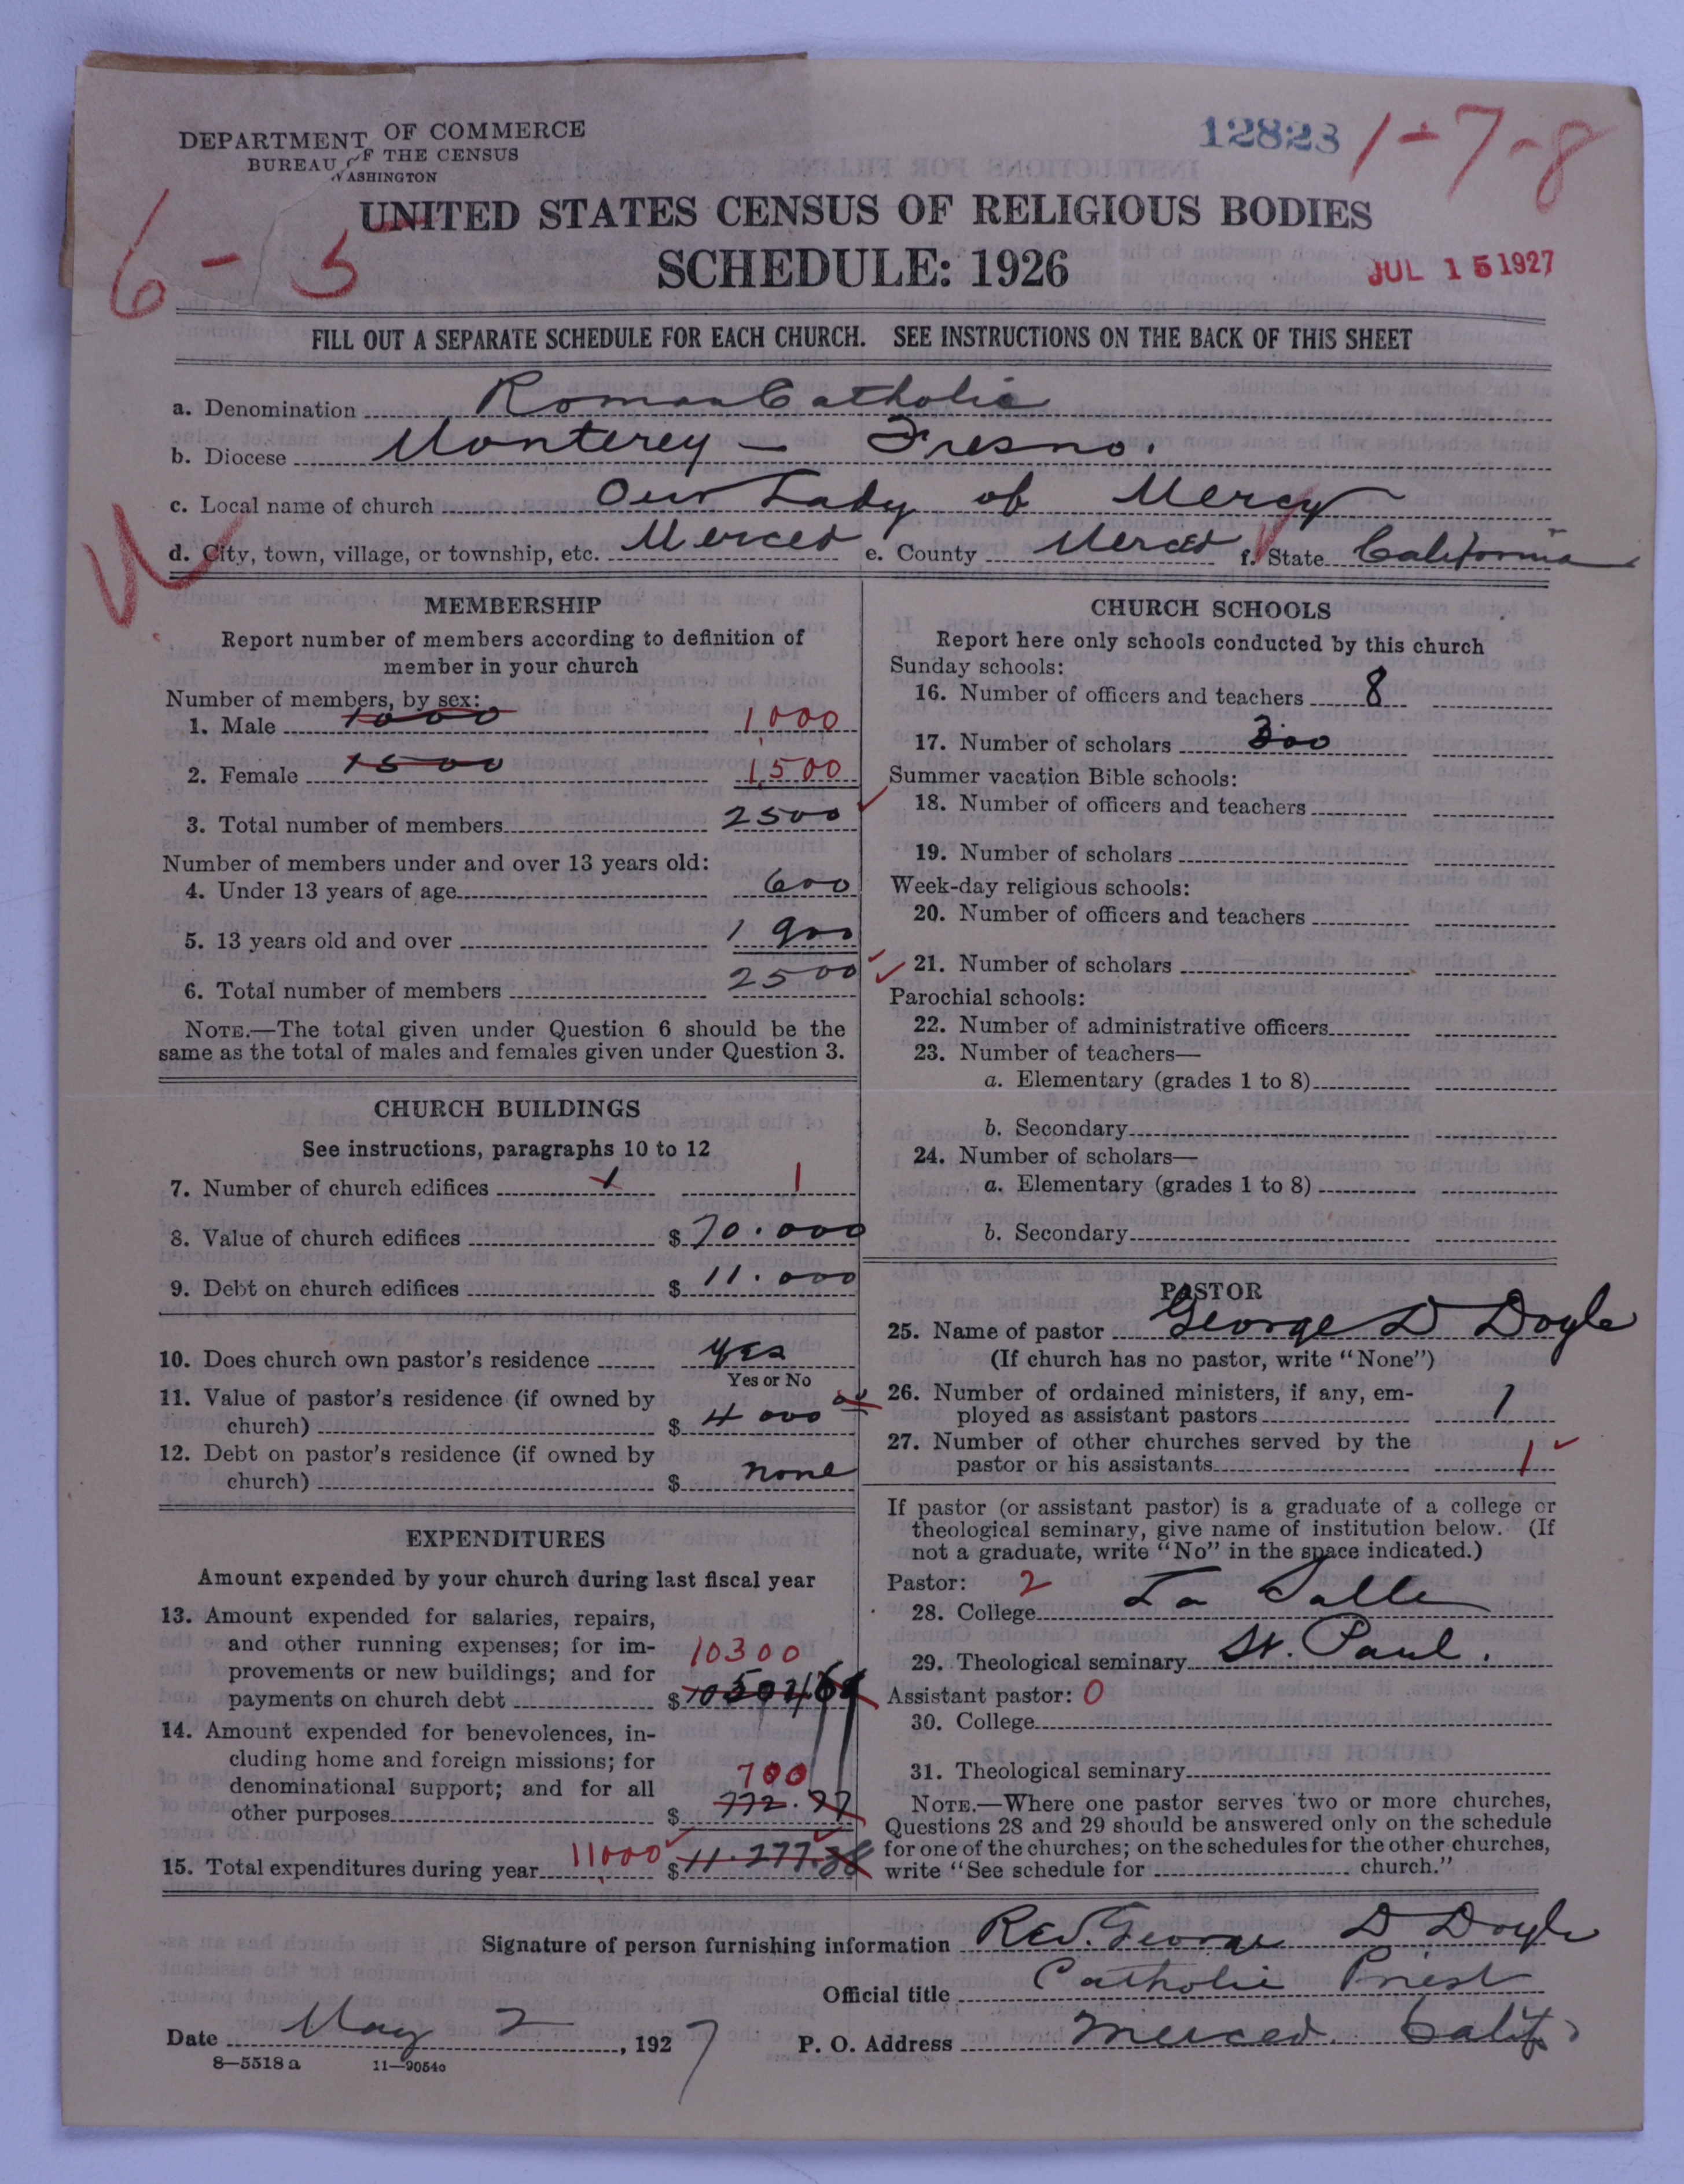 DEPARTMENT OF COMMERCE
BUREAU OF THE CENSUS
WASHINGTON
12823
1-7-8
6-5
UNITED STATES CENSUS OF RELIGIOUS BODIES
SCHEDULE: 1926
JUL 15 1927
FILL OUT A SEPARATE SCHEDULE FOR EACH CHURCH. SEE INSTRUCTIONS ON THE BACK OF THIS SHEET
a. Denomination Roman Catholic
b. Diocese Monterey - Fresno.
c. Local name of church Our Lady of Mercy
d. City, town, village, or township, etc. Merced e. County Merced f. State California
MEMBERSHIP
Report number of members according to definition of
member in your church
Number of members, by sex:
1. Male 1000 1,000
2. Female 1500 1,500
3. Total number of members 2500
Number of members under and over 13 years old:
4. Under 13 years of age 600
5. 13 years old and over 1 900
6. Total number of members 2500
NOTE.—The total given under Question 6 should be the
same as the total of males and females given under Question 3.
CHURCH BUILDINGS
See instructions, paragraphs 10 to 12
7. Number of church edifices 1 1
8. Value of church edifices $ 70.000
9. Debt on church edifices $ 11.000
10. Does church own pastor's residence yes
Yes or No
11. Value of pastor's residence (if owned by
church) $ 4000
12. Debt on pastor's residence (if owned by
church) $ none
EXPENDITURES
Amount expended by your church during last fiscal year
13. Amount expended for salaries, repairs,
and other running expenses; for im-
provements or new buildings; and for
10300
payments on church debt $
14. Amount expended for benevolences, in-
cluding home and foreign missions; for
denominational support; and for all 700
other purposes $ 772.77
15. Total expenditures during year 11000 $ 11.277.38
CHURCH SCHOOLS
Report here only schools conducted by this church
Sunday schools:
16. Number of officers and teachers 8
17. Number of scholars 300
Summer vacation Bible schools:
18. Number of officers and teachers
19. Number of scholars
Week-day religious schools:
20. Number of officers and teachers
21. Number of scholars
Parochial schools:
22. Number of administrative officers
23. Number of teachers—
a. Elementary (grades 1 to 8)
b. Secondary
24. Number of scholars—
a. Elementary (grades 1 to 8)
b. Secondary
PASTOR
25. Name of pastor George D Doyle
(If church has no pastor, write "None")
26. Number of ordained ministers, if any, em-
ployed as assistant pastors 1
27. Number of other churches served by the
pastor or his assistants 1
If pastor (or assistant pastor) is a graduate of a college or
theological seminary, give name of institution below. (If
not a graduate, write "No" in the space indicated.)
Pastor: 2
28. College La Salle
29. Theological seminary St. Paul.
Assistant pastor: 0
30. College
31. Theological seminary
NOTE.—Where one pastor serves two or more churches,
Questions 28 and 29 should be answered only on the schedule
for one of the churches; on the schedules for the other churches,
write "See schedule for church."
Signature of person furnishing information Rev. George D Doyle
Official title Catholic Priest
Date May 2, 1927 P. O. Address Merced. Calif
8—5518 a 11—9054o